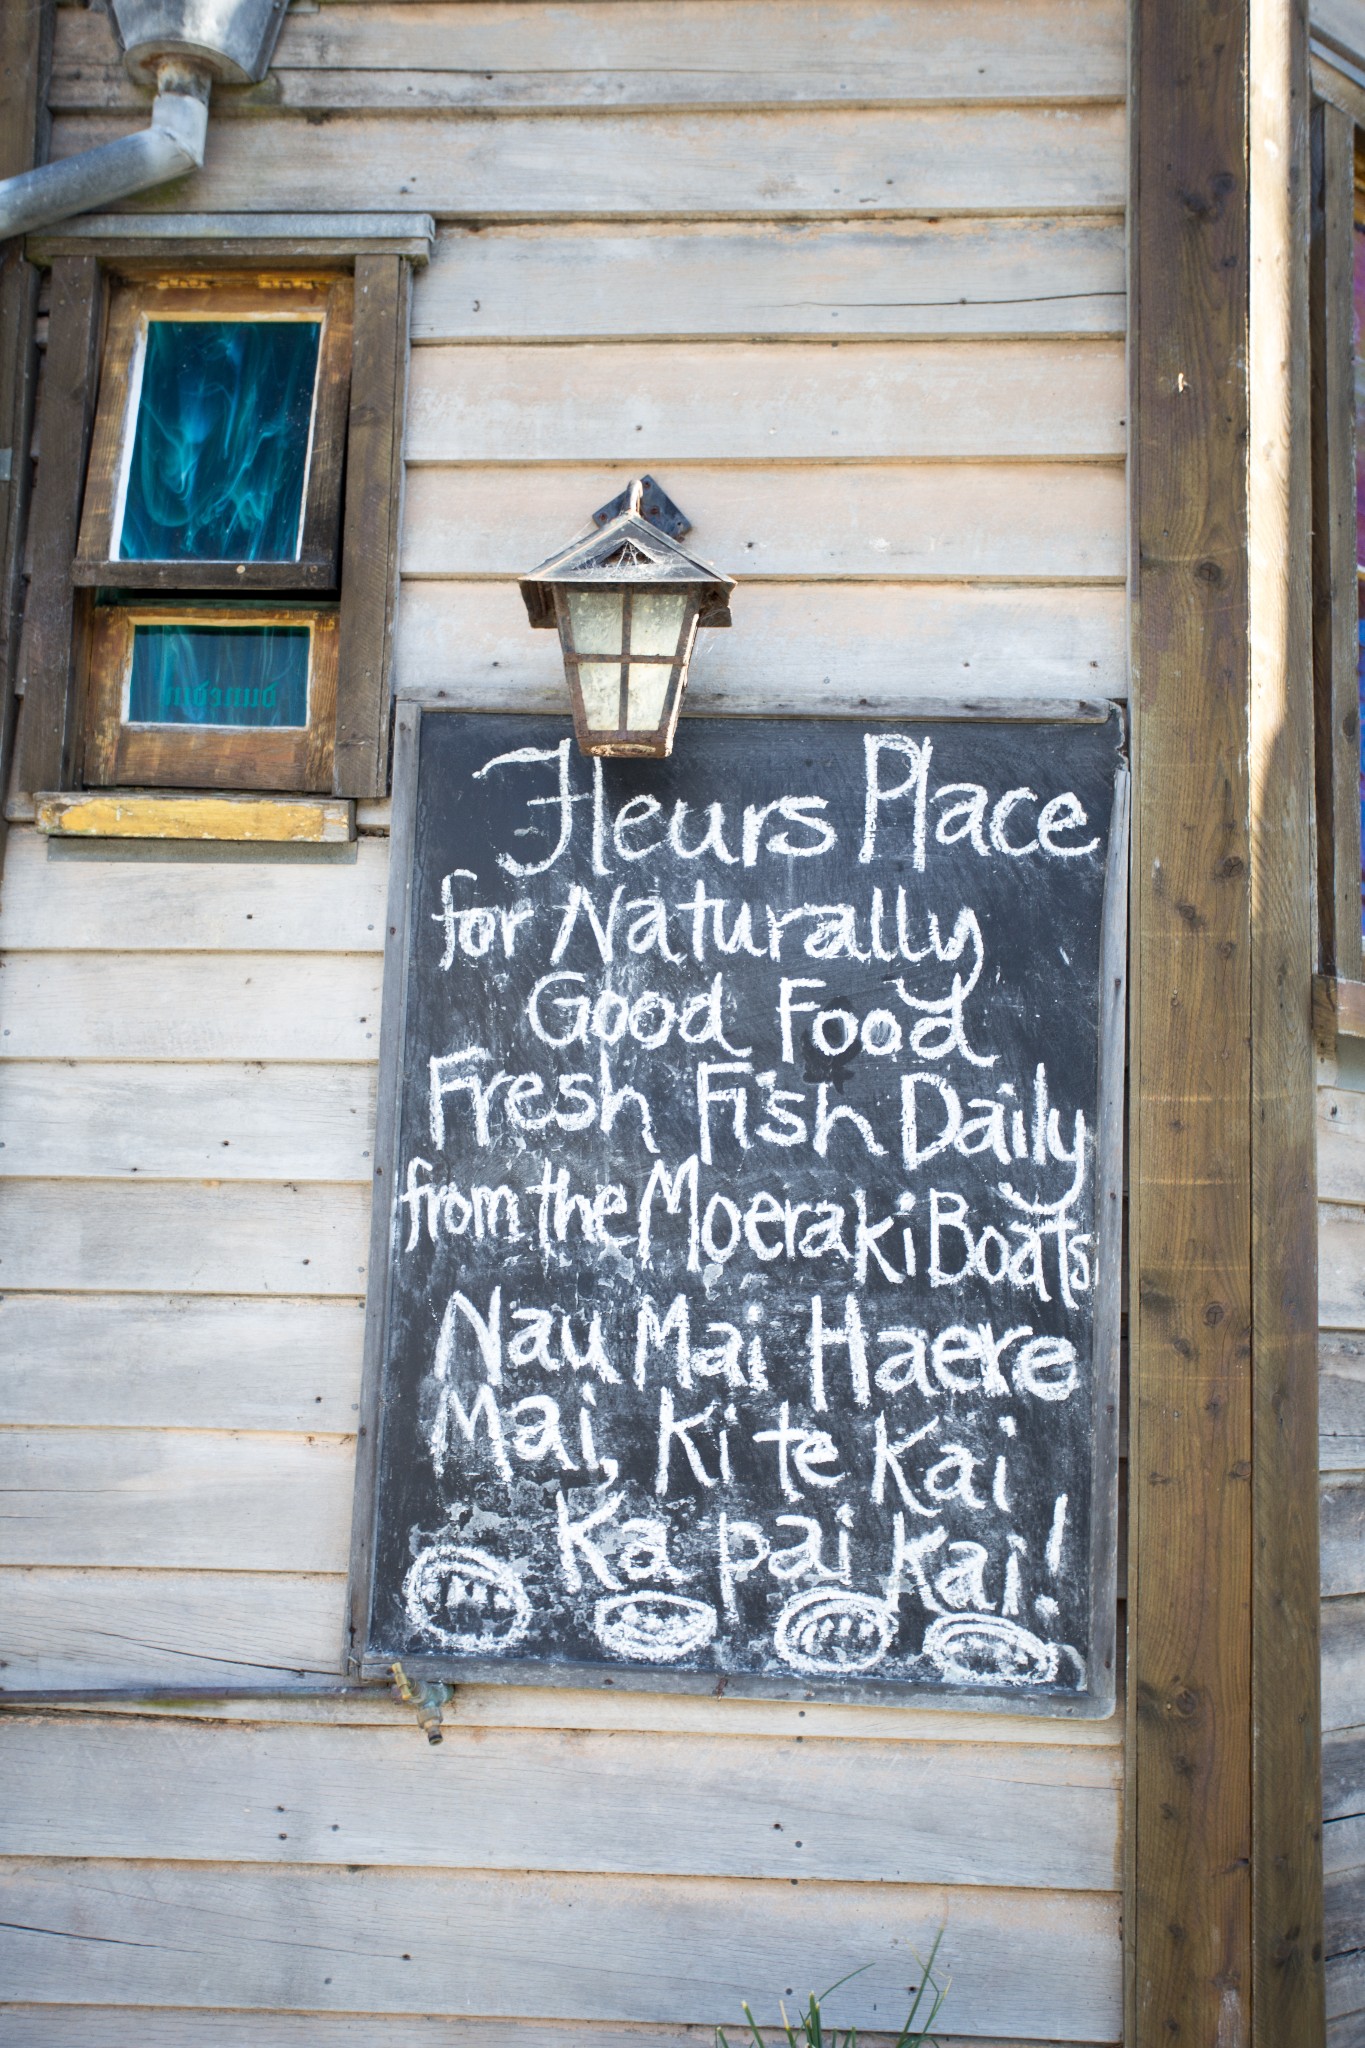 dunedin
Fleurs Place
for Naturally
Good Food
Fresh Fish Daily
from the Moeraki Boats
Nau Mai Haere
Mai, Ki te Kai
Ka pai Kai!